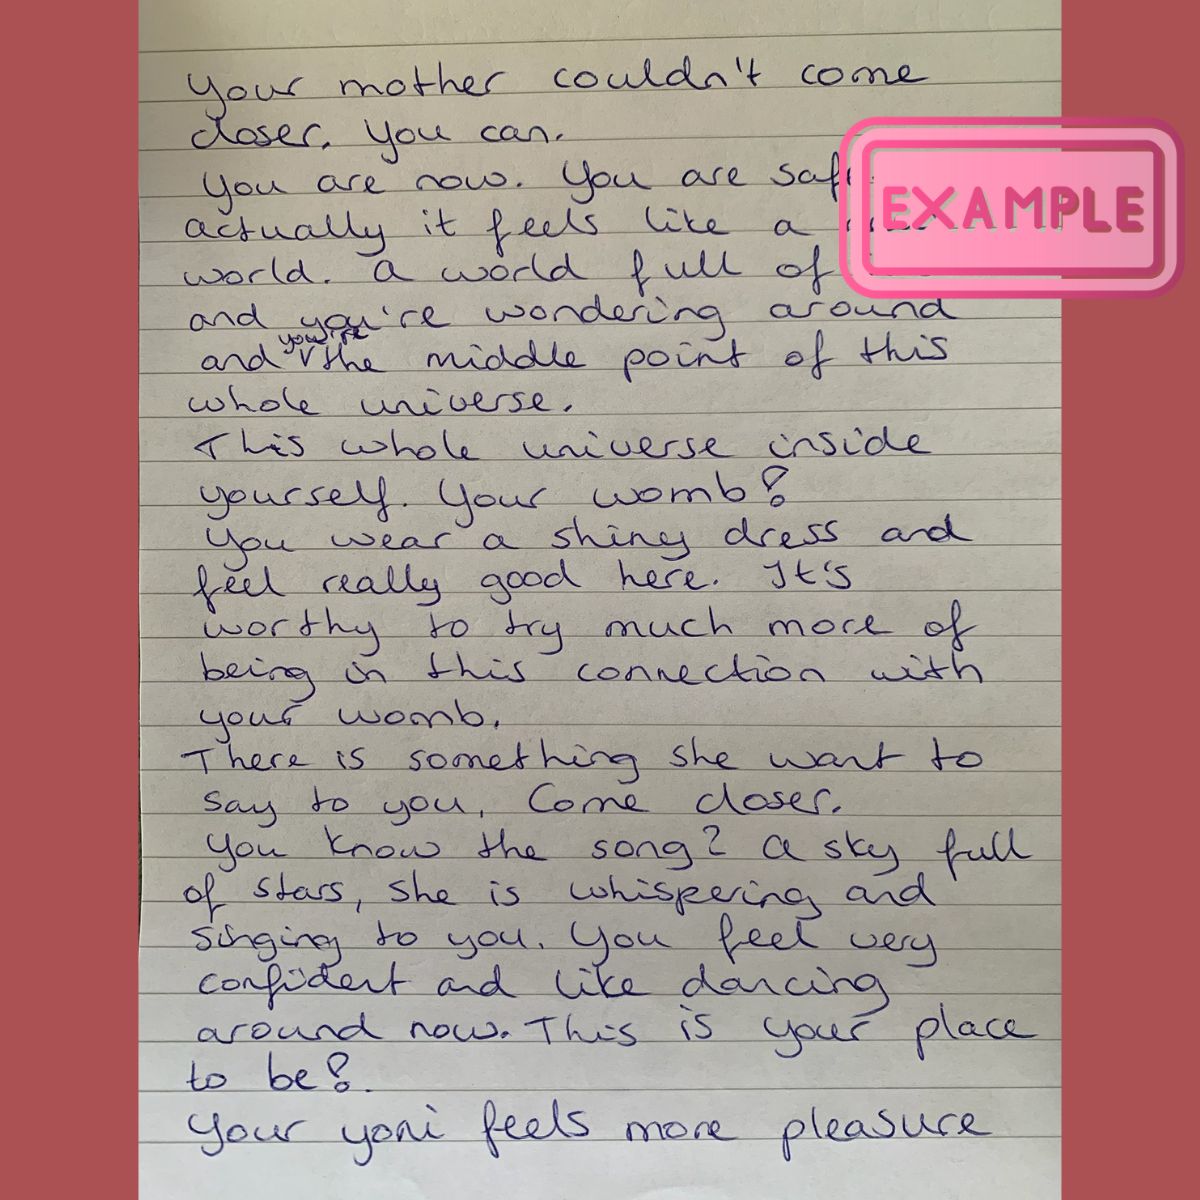 Your mother couldn't come
closer. You can.
You are now. You are
EXAMPLE
actually it feels like a
world. A world full of
and you're wondering around
you're
and the middle point of this
whole universe.
This whole universe inside
yourself. Your womb!
You wear a shiny dress and
feel really good here. It's
worthy to try much more of
being in this connection with
your womb.
There is something she want to
say to you. Come closer.
You know the song? A sky full
of stars, she is whispering and
singing to you. You feel very
confident and like dancing
around now. This is your place
to be!.
Your yoni feels more pleasure